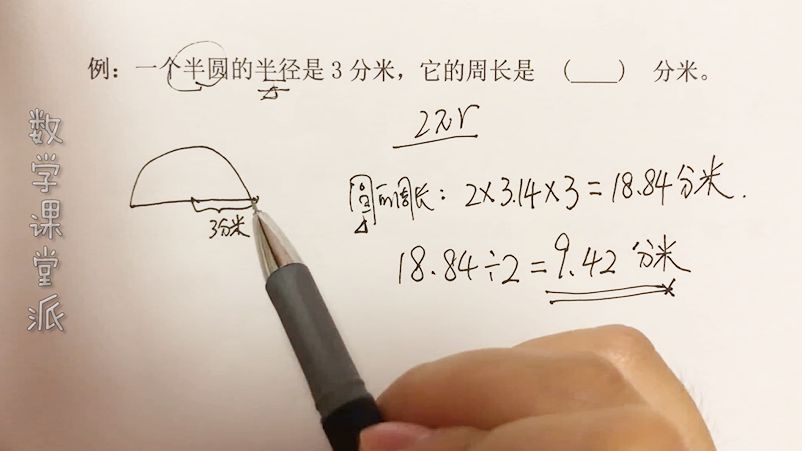 例：一个半圆的半径是3分米，它的周长是 （____） 分米。
2πr
圆的周长：2×3.14×3=18.84分米.
18.84÷2=9.42 分米
3分米
数学课堂派